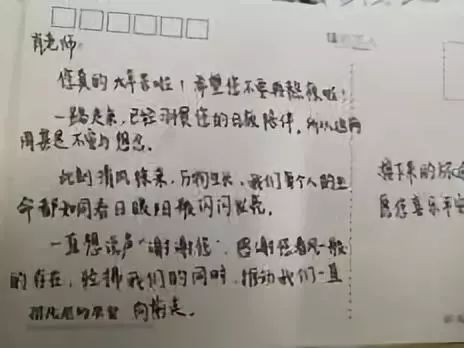 肖老师
您真的太辛苦啦！希望您不要再熬夜啦！
一路走来，已经习惯您的日夜陪伴，所以
不要与
此刻清风徐来，万物生长，我们每个人的生
命都如同春日眼阳般闪闪发亮。
一直想说声“谢谢您”，感谢您春风一般
的存在，轻拂我们的同时，推动我们一直
向前走。
接下来的旅
愿您喜乐平安